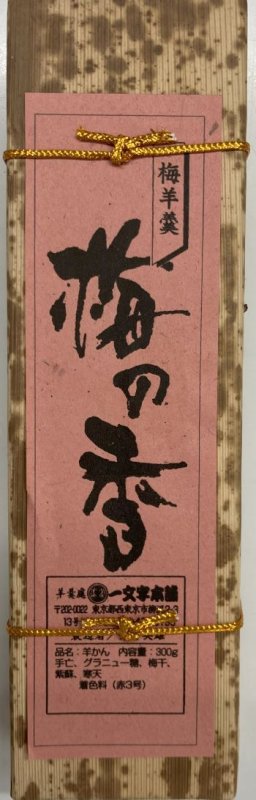 梅羊羹
梅の香
羊羹處 一文字本舗
〒202-0022 東京都西東京市柳沢2-3
13号
品名:羊かん 内容量:300g
手亡、グラニュー糖、梅干、
紫蘇、寒天
着色料(赤3号)